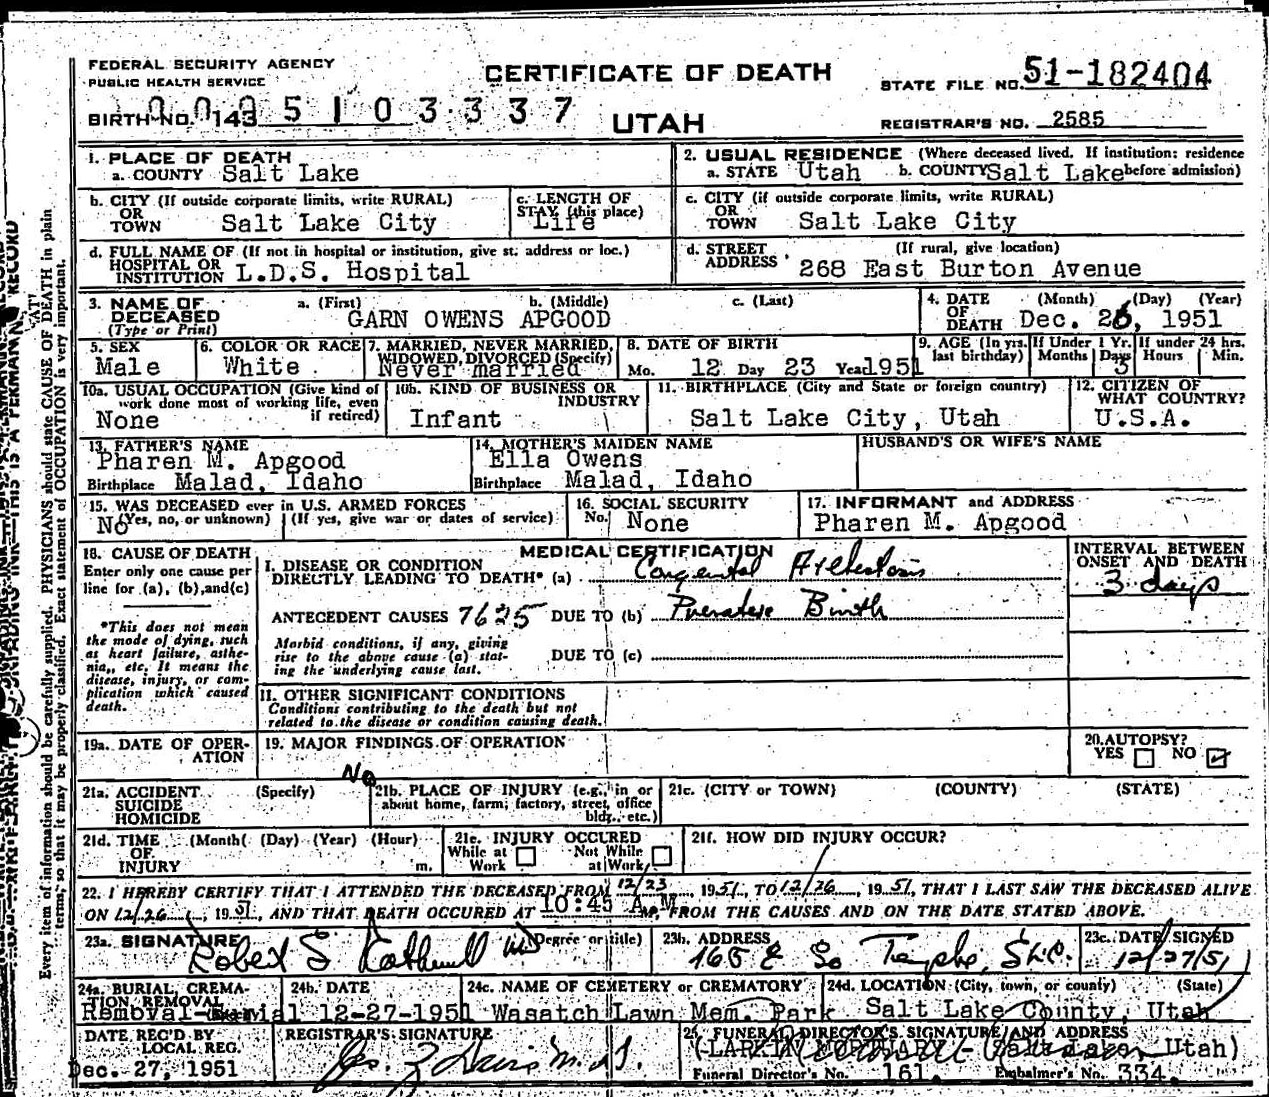 FEDERAL SECURITY AGENCY
PUBLIC HEALTH SERVICE
CERTIFICATE OF DEATH
STATE FILE NO. 51-182404
BIRTH NO. 143 5 1 0 3 3 3 7
UTAH
REGISTRAR'S NO. 2585
1. PLACE OF DEATH
a. COUNTY Salt Lake
2. USUAL RESIDENCE (Where deceased lived. If institution: residence before admission)
a. STATE Utah b. COUNTY Salt Lake
b. CITY (If outside corporate limits, write RURAL) OR TOWN Salt Lake City
c. LENGTH OF STAY (this place) Life
c. CITY (if outside corporate limits, write RURAL) OR TOWN Salt Lake City
d. FULL NAME OF (If not in hospital or institution, give st. address or loc.) HOSPITAL OR INSTITUTION L.D.S. Hospital
d. STREET ADDRESS (If rural, give location) 268 East Burton Avenue
3. NAME OF DECEASED (Type or Print) a. (First) b. (Middle) c. (Last)
GARN OWENS APGOOD
4. DATE OF DEATH (Month) (Day) (Year) Dec. 26, 1951
5. SEX Male
6. COLOR OR RACE White
7. MARRIED, NEVER MARRIED, WIDOWED, DIVORCED (Specify) Never married
8. DATE OF BIRTH Mo. 12 Day 23 Year 1951
9. AGE (In yrs. last birthday) If Under 1 Yr. Months Days 3 If under 24 hrs. Hours Min.
10a. USUAL OCCUPATION (Give kind of work done most of working life, even if retired) None
10b. KIND OF BUSINESS OR INDUSTRY Infant
11. BIRTHPLACE (City and State or foreign country) Salt Lake City, Utah
12. CITIZEN OF WHAT COUNTRY? U.S.A.
13. FATHER'S NAME Pharen M. Apgood
Birthplace Malad, Idaho
14. MOTHER'S MAIDEN NAME Ella Owens
Birthplace Malad, Idaho
HUSBAND'S OR WIFE'S NAME
15. WAS DECEASED ever in U.S. ARMED FORCES
No (Yes, no, or unknown) (If yes, give war or dates of service)
16. SOCIAL SECURITY No. None
17. INFORMANT and ADDRESS
Pharen M. Apgood
18. CAUSE OF DEATH
Enter only one cause per line for (a), (b), and (c)
*This does not mean the mode of dying, such as heart failure, asthenia, etc. It means the disease, injury, or complication which caused death.
MEDICAL CERTIFICATION
I. DISEASE OR CONDITION
DIRECTLY LEADING TO DEATH* (a)
INTERVAL BETWEEN ONSET AND DEATH
3 days
ANTECEDENT CAUSES 7625 DUE TO (b) Birth
Morbid conditions, if any, giving rise to the above cause (a) stating the underlying cause last.
DUE TO (c)
II. OTHER SIGNIFICANT CONDITIONS
Conditions contributing to the death but not related to the disease or condition causing death.
19a. DATE OF OPERATION
19. MAJOR FINDINGS OF OPERATION
No
20. AUTOPSY?
YES NO
21a. ACCIDENT SUICIDE HOMICIDE (Specify)
21b. PLACE OF INJURY (e.g., in or about home, farm, factory, street, office bldg., etc.)
21c. (CITY OR TOWN) (COUNTY) (STATE)
21d. TIME OF INJURY (Month) (Day) (Year) (Hour) m.
21e. INJURY OCCURED
While at Work Not While at Work
21f. HOW DID INJURY OCCUR?
22. I HEREBY CERTIFY THAT I ATTENDED THE DECEASED FROM 12/23, 1951, TO 12/26, 1951, THAT I LAST SAW THE DECEASED ALIVE
ON 12/26, 1951, AND THAT DEATH OCCURED AT 10:45 A.M. FROM THE CAUSES AND ON THE DATE STATED ABOVE.
23a. SIGNATURE (Degree or title)
Robert S MD
23b. ADDRESS
So Temple, SLC.
23c. DATE SIGNED
12/27/51
24a. BURIAL, CREMATION, REMOVAL
Removal-Burial
24b. DATE
12-27-1951
24c. NAME OF CEMETERY OR CREMATORY
Wasatch Lawn Mem. Park
24d. LOCATION (City, town, or county) (State)
Salt Lake County, Utah
DATE REC'D BY LOCAL REG.
Dec. 27, 1951
REGISTRAR'S SIGNATURE
25. FUNERAL DIRECTOR'S SIGNATURE AND ADDRESS
(LARKIN MORTUARY - Salt Lake Utah)
Funeral Director's No. 161. Embalmer's No. 334.
Every item of information should be carefully supplied. PHYSICIANS should state CAUSE OF DEATH in plain
terms, so that it may be properly classified. Exact statement of OCCUPATION is very important.
THIS IS A PERMANENT RECORD